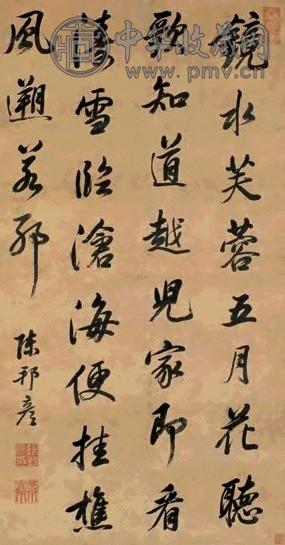 鏡水芙蓉五月花聽
歌知道越兒家即看
雪臨滄海便挂樵
風遡若邪
陳邦彥
中华收藏网
www.pmv.cn